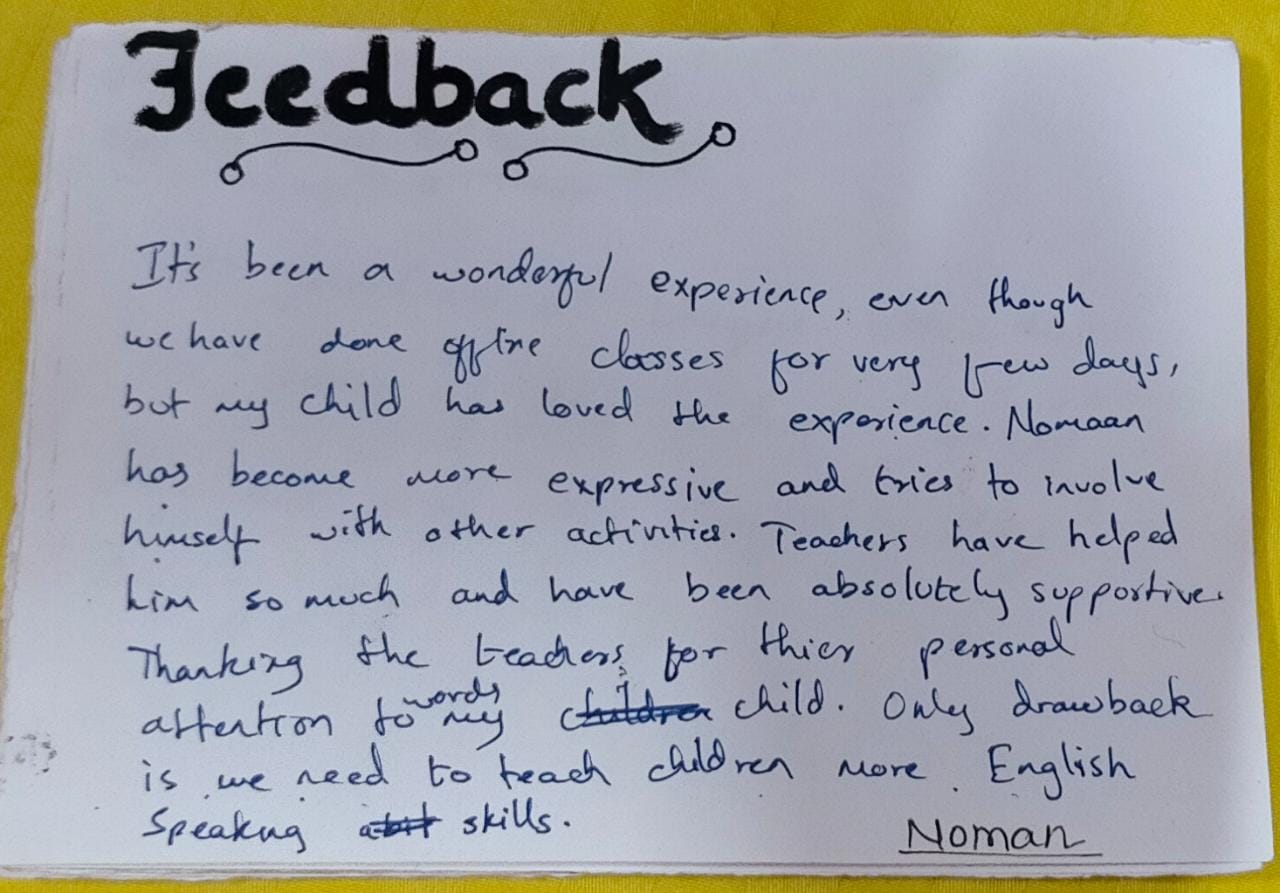 Feedback
It's been a wonderful experience, even though
we have done offline classes for very few days,
but my child has loved the experience. Nomaan
has become more expressive and tries to involve
himself with other activities. Teachers have helped
him so much and have been absolutely supportive.
Thanking the teachers for thier personal
attention towords my children child. Only drawback
is we need to teach children more English
Speaking abit skills.
Noman